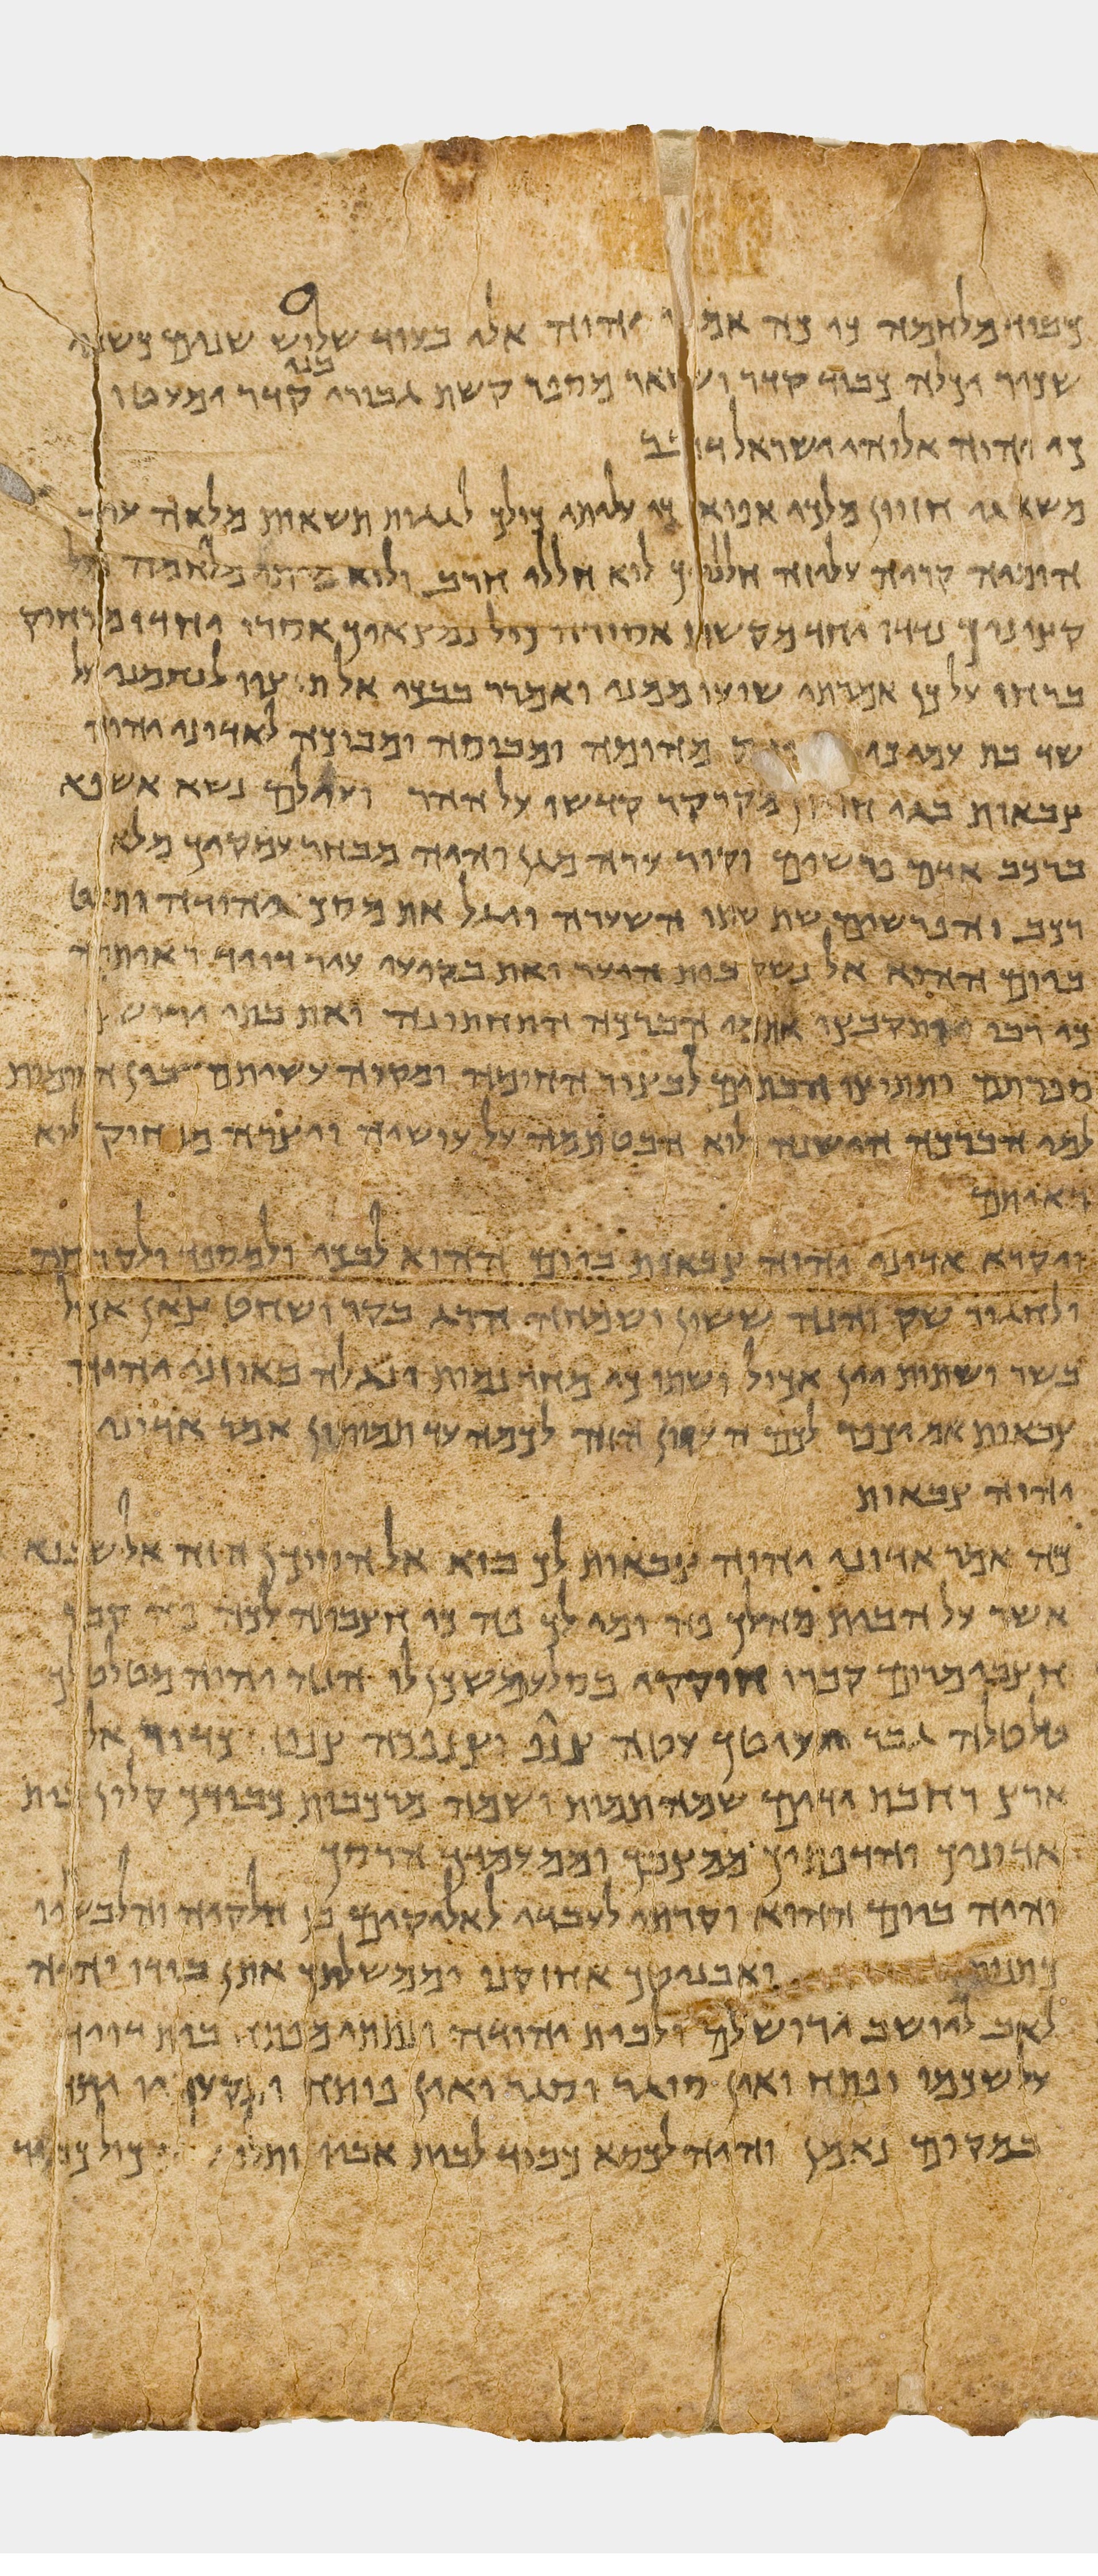 כבוד מלחמה כיא כה אמר יהוה אלי בעוד שלוש שנים כשני
שכיר יכלה כבוד קדר ושאר מספר קשת גבורי בני קדר ימעטו
כי יהוה אלוהי ישראל דבר
משא גי חזיון מלכי אפוא כי עליתי כולך לגגות תשאות מלאה עיר
הומיה קריה עליזה חלליך לוא חללי חרב ולוא מיתי מלחמה כול
קציניך נדדו יחד מקשת אסורה כול נמצאיך אסרו יחדו מרחוק
ברחו על כן אמרתי שועו ממני ואמרר בבכי אל תאיצו לנחמני על
שד בת עמי כי מהומה ומבוסה ומבוכה לאדוני יהוה
צבאות בגי חזיון מקרקר קדשו על ההר ועילם נשא אשפא
ברכב אדם פרשים וקיר ערה מגן והיה מבחר עמקיך מלאו
רכב והפרשים שת שתו השערה ויגל את מסך יהודה ותבט
ביום ההוא אל נשק בית היער ואת בקיעי עיר דויד ראיתמה
כי רבו ותקבצו את מי הברכה התחתונה ואת בתי
ספרתם ותתוצו הבתים לבצור החומה ומקוה עשיתם בין החומות
למי הברכה הישנה ולוא הבטתמה על עושיה ויצרה מרחוק לוא
ראיתם
ויקרא אדוני יהוה צבאות ביום ההוא לבכי ולמספד ולקרחה
ולחגור שק והנה ששון ושמחה הרג בקר ושחט צאן אכול
בשר ושתות יין אכול ושתו כי מחר נמות ונגלה באוזני יהוה
צבאות אם יכפר לכם העוון הזה לכמה עד תמותון אמר אדוני
יהוה צבאות
כה אמר אדוני יהוה צבאות לך בוא אל הסוכן הזה אל שובנא
אשר על הבית מה לך פה ומי לך פה כי חצבתה לכה פה קבר
חצבי מרום קברו חוקקי בסלע משכן לו הנה יהוה מטלטלך
טלטלה גבר יעוטך עטה צנוף וצנפכה צנפה כדור אל
ארץ רחבת ידים שמה תמות ושמה מרכבות כבודך קלון בית
אדוניך והדפתיך ממצבך וממעמדך הרסך
והיה ביום ההוא וקרתי לעבדי לאליקים בן חלקיה והלבשתיו
כתנתך ואבניטך אחזקנו וממשלתך אתן בידו והיה
לאב ליושב ירושלם ולבית יהודה ונתתי מפתח בית דויד
על שכמו ופתח ואין סוגר וסגר ואין פותח ותקעתיו יתד
במקום נאמן והיה לכסא כבוד לבית אביו ותלו כול כבוד